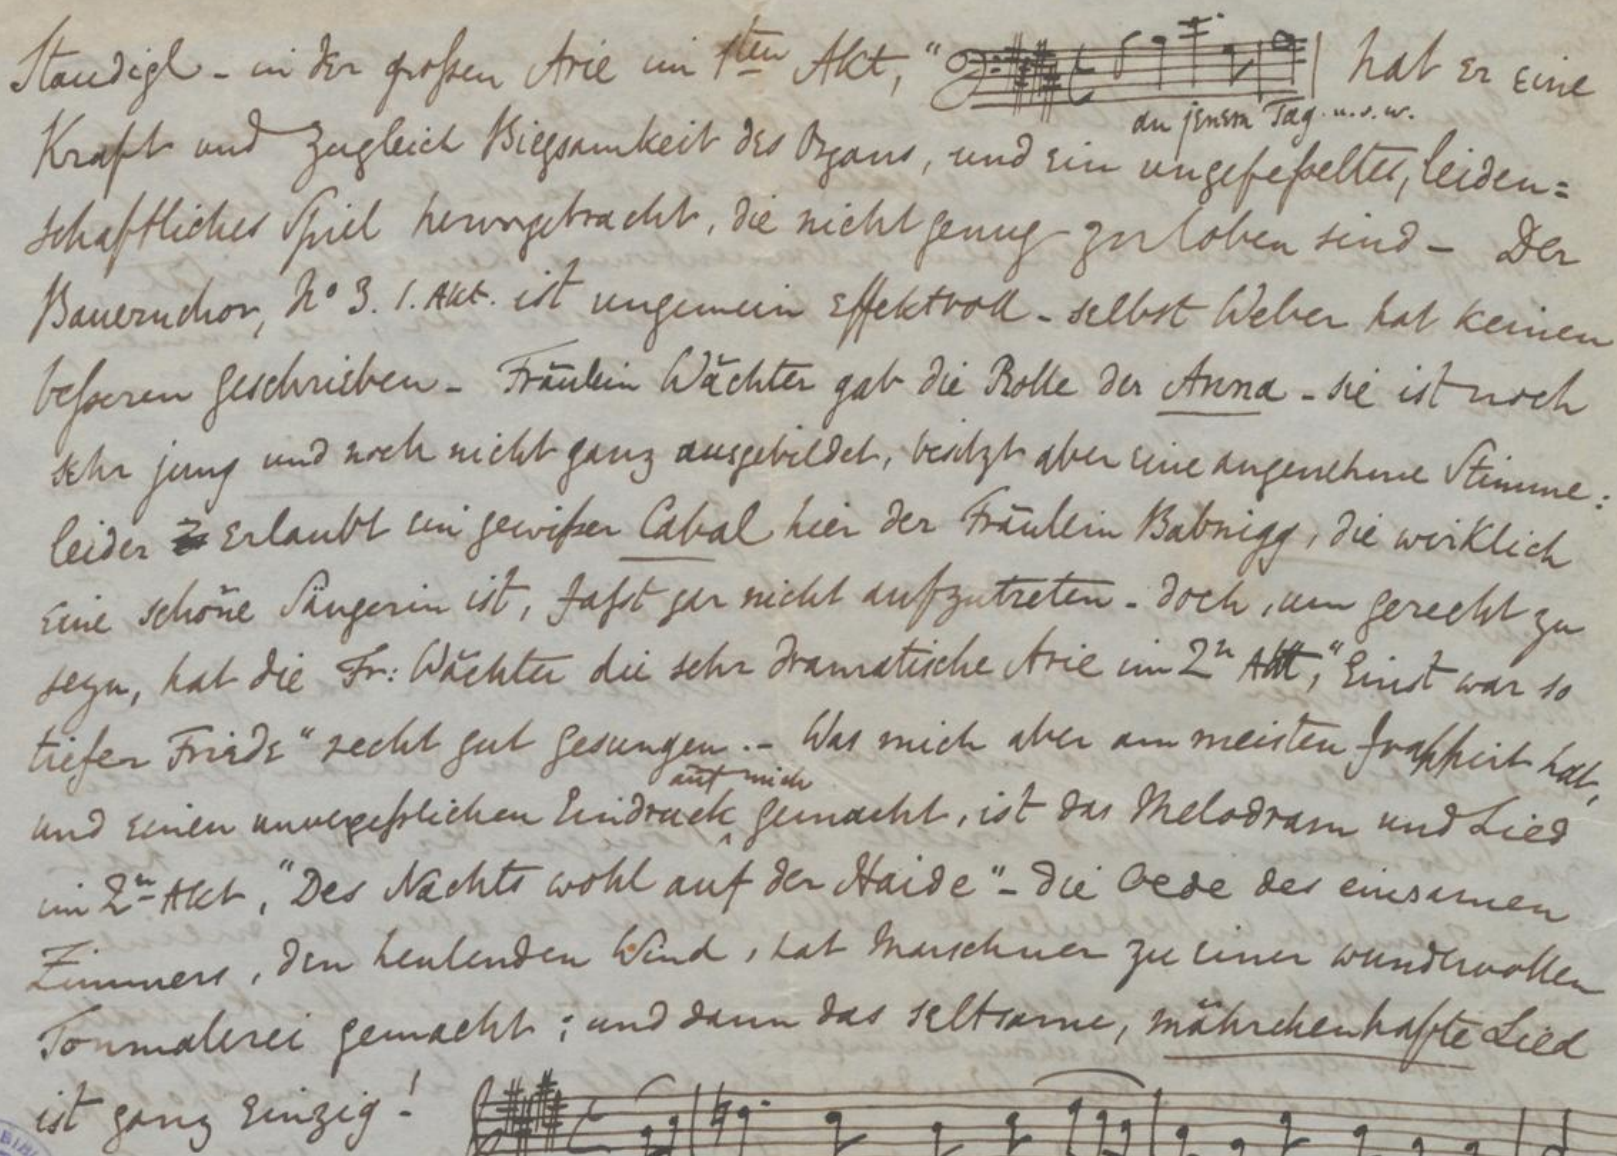 Staudigl - in der großen Arie im 1ten Akt, "
hat er eine
an jenem Tag u.s.w.
Kraft und zugleich Biegsamkeit des Organs, und ein ungefeßeltes, leiden=
schaftliches Spiel hervorgebracht, die nicht genug zu loben sind - Der
Bauernchor, No 3. 1. Akt. ist ungemein effektvoll - selbst Weber hat keinen
beßeren geschrieben - Fräulein Wächter gab die Rolle der Anna - sie ist noch
sehr jung und noch nicht ganz ausgebildet, besitzt aber eine angenehme Stimme:
leider erlaubt ein gewißer Cabal hier der Fräulein Babnigg, die wirklich
eine schöne Sängerin ist, fast gar nicht aufzutreten - doch, um gerecht zu
seyn, hat die Fr: Wächter die sehr dramatische Arie im 2n Akt, "Einst war so
tiefer Friede" recht gut gesungen. - Was mich aber am meisten frappirt hat,
auf mich
und einen unvergeßlichen Eindruck gemacht, ist das Melodram und Lied
im 2n Akt, "Des Nachts wohl auf der Haide" - die Oede des einsamen
Zimmers, den heulenden Wind, hat Marschner zu einer wundervollen
Tonmalerei gemacht; und dann das seltsame, mährchenhafte Lied
ist ganz einzig!